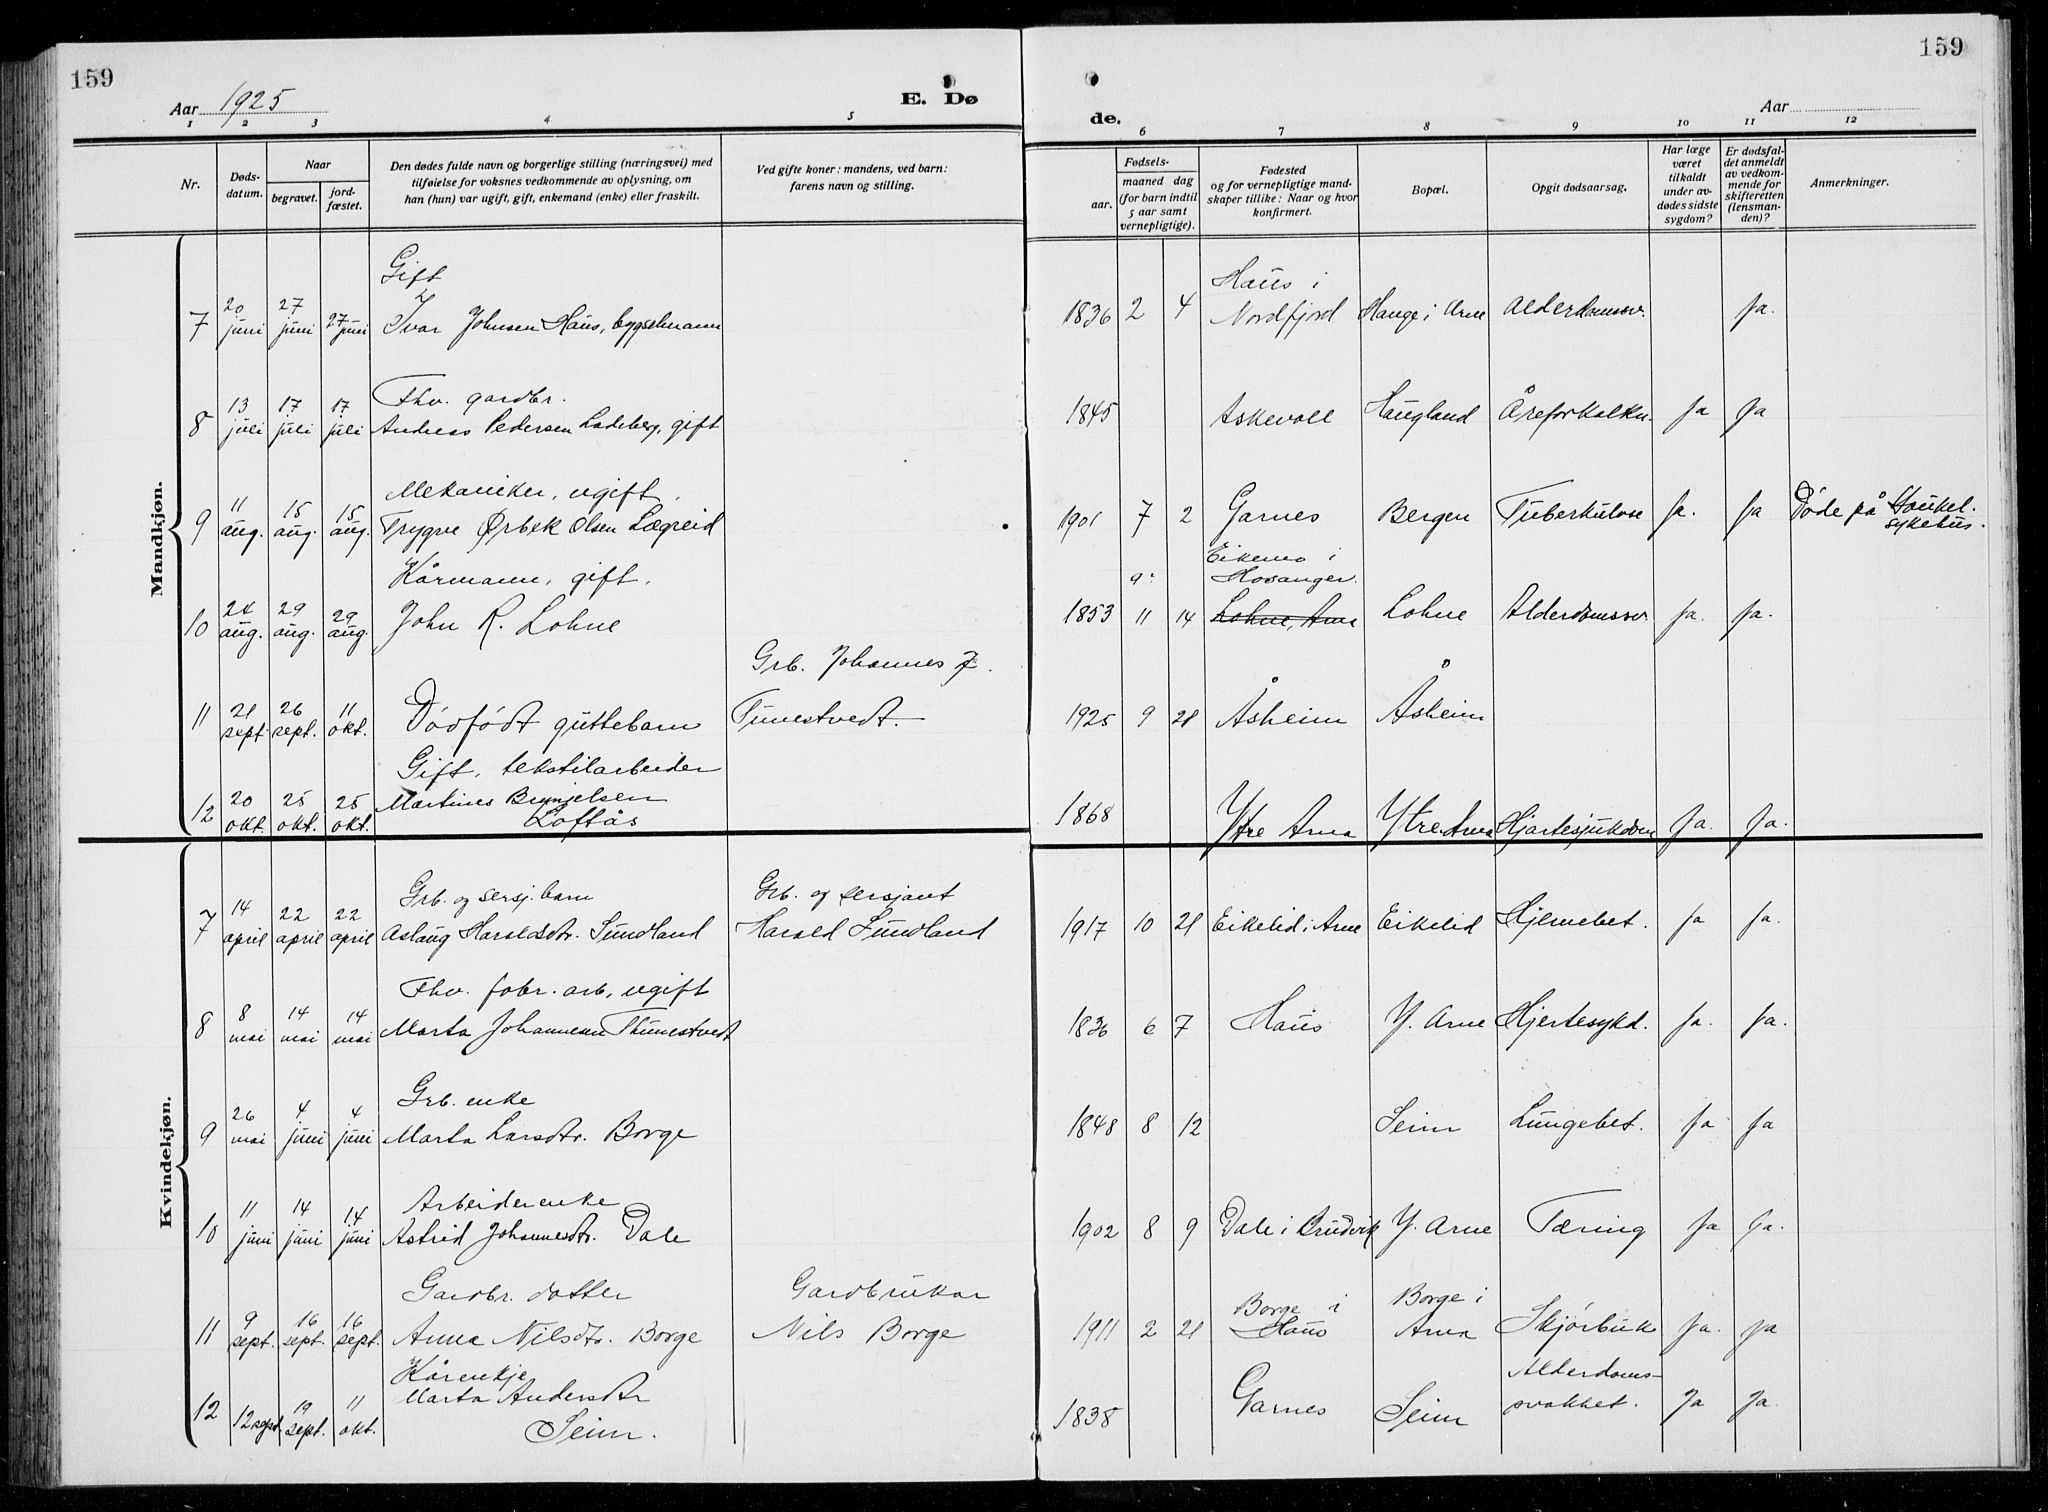 159
159
Aar 1925
E. Dø
de.
Aar
1 2 3 4 5
6 7 8 9 10 11 12
Nr.
Døds-
datum.
Naar
begravet.
jord-
fæstet.
Den dødes fulde navn og borgerlige stilling (næringsvei) med
tilføielse for voksnes vedkommende av oplysning, om
han (hun) var ugift, gift, enkemand (enke) eller fraskilt.
Ved gifte koner: mandens, ved barn:
farens navn og stilling.
Fødsels-
aar.
maaned dag
(for barn indtil
5 aar samt
vernepligtige).
Fødested
og for vernepligtige mand-
skaper tillike: Naar og hvor
konfirmert.
Bopæl.
Opgit dødsaarsag.
Har læge
været
tilkaldt
under av-
dødes sidste
sygdom?
Er dødsfal-
det anmeldt
av vedkom-
mende for
skifteretten
(lensman-
den)?
Anmerkninger.
Mandkjøn.
Gift
7 20 juni 27 juni 27 juni Ivar Johnsen Haus, bygselmann 1836 2 4 Haus i
Nordfjord Hauge i Arne Alderdomssv. Ja.
Fhv. gardbr.
8 13 juli 17 juli 17 juli Andreas Pedersen Ladeberg, gift 1845 Askevoll Haugland Åreforkalkn. Ja Ja
Mekaniker, ugift.
9 11 aug. 15 aug. 15 aug. Trygve Ørbek Olsen Lægreid 1901 7 2 Garnes Bergen Tuberkulose Ja. Ja Døde på Haukel.
sykehus.
Kårmann, gift.
Eikemo i
Hosanger.
10 24 aug. 29 aug. 29 aug. John R. Lohne 1853 11 14 Lohne, Arna Lohne Alderdomssv. Ja. Ja.
Grb. Johannes J.
11 21 sept. 26 sept. 11 okt. Dødfødt guttebarn Tunestvedt. 1925 9 21 Åsheim Åsheim
Gift, tekstilarbeider
12 20 okt. 25 okt. 25 okt. Martines Brynjelsen
Loftås 1868 Ytre Arna Ytre Arna Hjartesjukdom Ja. Ja.
Kvindekjøn.
Grb. og sersj. barn Grb. og sersjant
7 14 april 22 april 22 april Aslaug Haroldsdtr. Sundland Harald Sundland 1917 10 21 Eikelid i Arne Eikelid Hjernebet. Ja Ja.
Fhv. fabr. arb, ugift
8 8 mai 14 mai 14 mai Marta Johannesen Thunestvedt 1836 6 7 Haus Y. Arne Hjertesykd. Ja. Ja.
Grb. enke
9 26 mai 4 juni 4 juni Marta Larsdtr. Borge 1848 8 12 Seim Lungebet. Ja Ja
Arbeiderenke
10 11 juni 14 juni 14 juni Astrid Johannesdtr. Dale 1902 8 9 Dale i Bruvik Y. Arne Tæring Ja Ja.
Gardbr. datter Gardbrukar
11 9 sept. 16 sept. 16 sept. Anna Nilsdtr. Borge Nils Borge 1911 2 21 Borge i
Haus Borge i
Arna Skjørbuk Ja. Ja
Kårenkje
12 12 sept. 19 sept. 11 okt. Marta Andersdtr
Seim. 1838 Garnes Seim Alderdoms-
svakhet. Ja Ja.